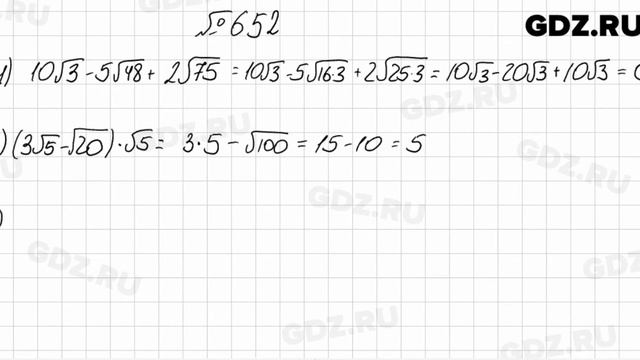 №652
GDZ.RU
1) 10√3 - 5√48 + 2√75 = 10√3 - 5√16·3 + 2√25·3 = 10√3 - 20√3 + 10√3 = 0
) (3√5 - √20) · √5 = 3·5 - √100 = 15 - 10 = 5
)
GDZ.RU
GDZ.RU
GDZ.RU
GDZ.RU
GDZ.RU
GDZ.RU
GDZ.RU
GDZ.RU